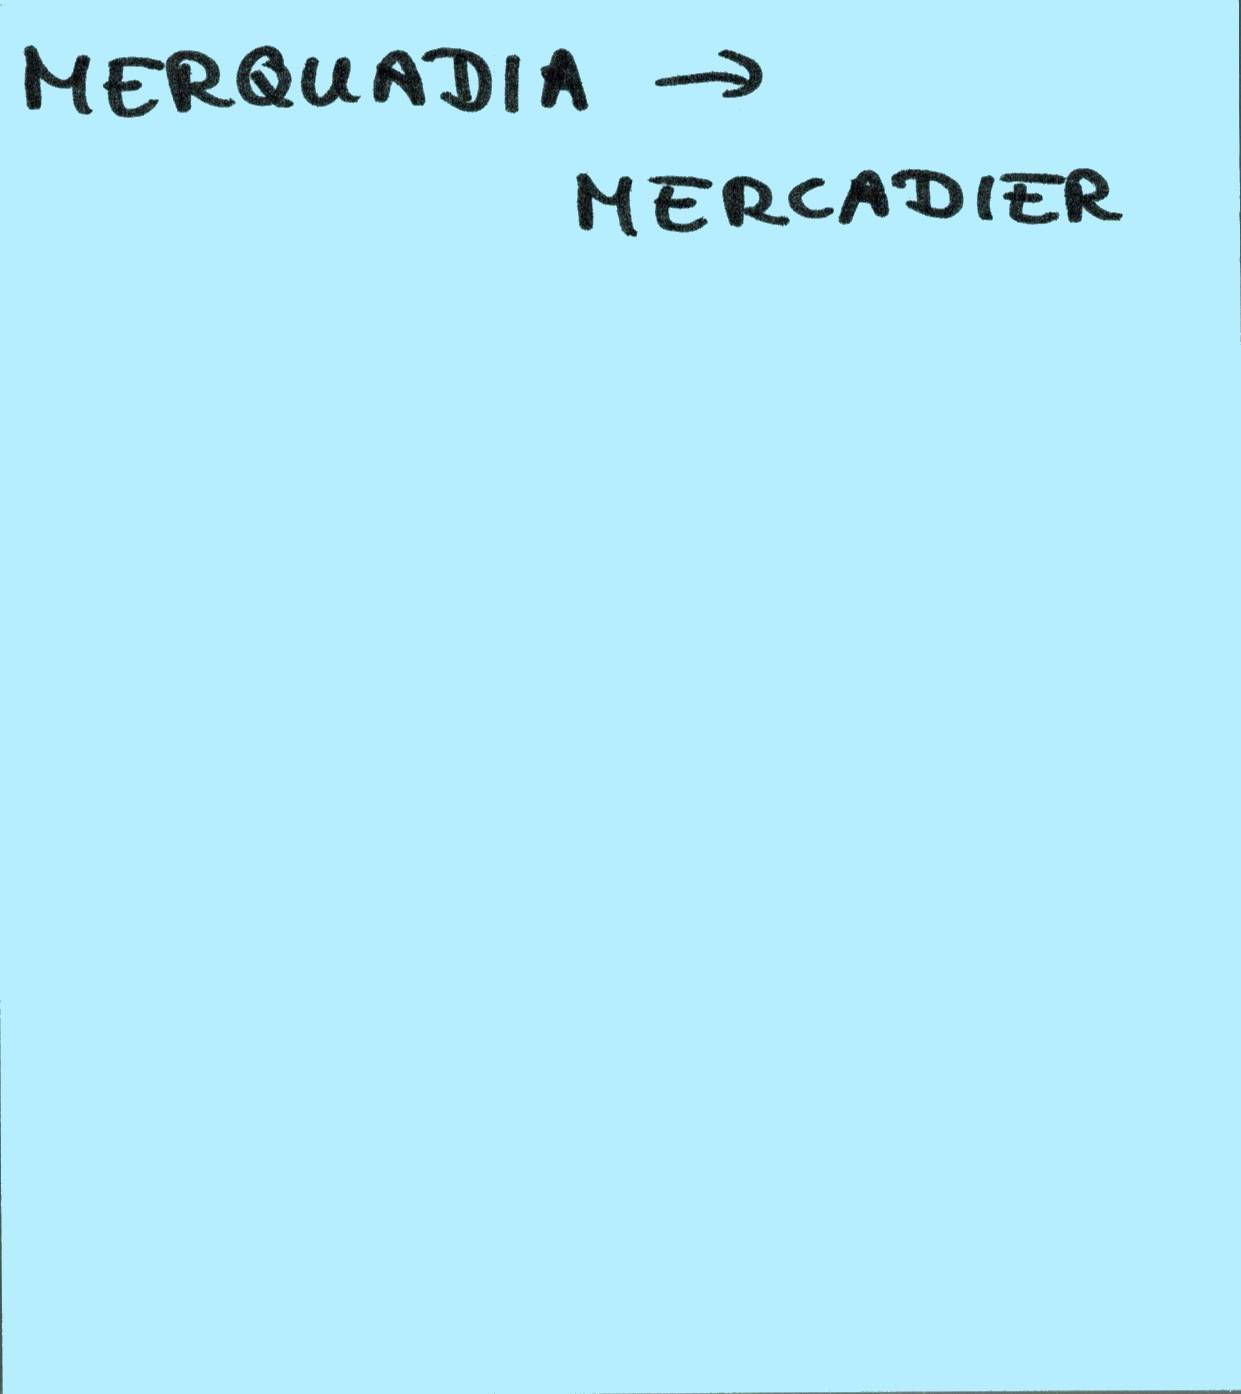 MERQUADIA →
MERCADIER